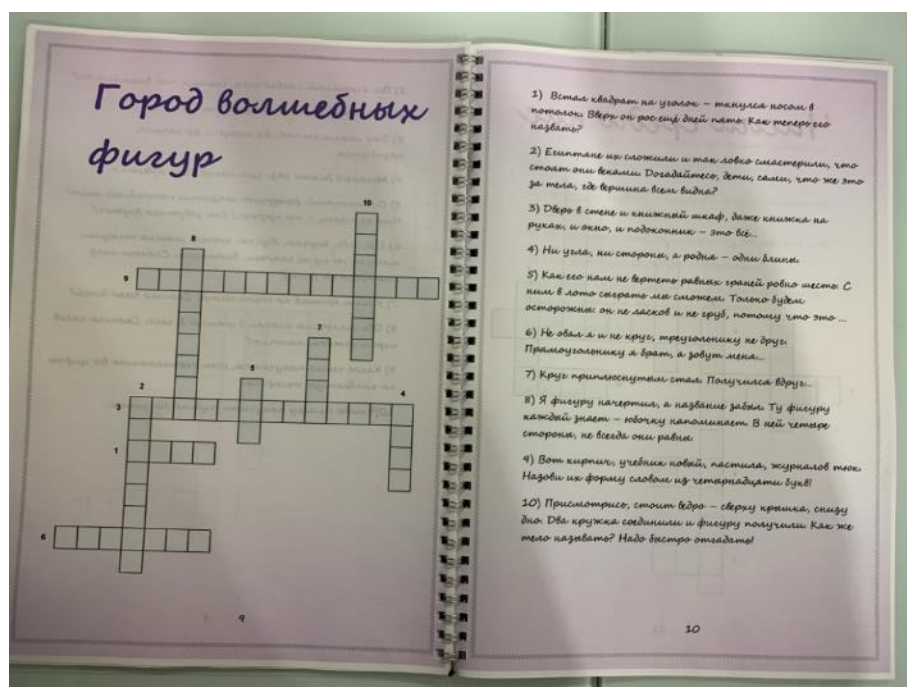 Город волшебных
фигур
10
8
9
7
5
2
4
3
1
6
9
1) Встал квадрат на уголок – ткнулся носом в
потолок. Вверх он рос ещё дней пять. Как теперь его
назвать?
2) Египтяне их сложили и так ловко смастерили, что
стоят они веками. Догадайтесь, дети, сами, что же это
за тела, где вершина всем видна?
3) Дверь в стене и книжный шкаф, даже книжка на
руках, и окно, и подоконник – это всё...
4) Ни угла, ни стороны, а родня – одни блины.
5) Как его нам не вертеть равных граней ровно шесть. С
ним в лото сыграть мы сможем. Только будем
осторожны: он не ласков и не груб, потому что это ...
6) Не овал я и не круг, треугольнику не друг.
Прямоугольнику я брат, а зовут меня...
7) Круг приплюснутым стал. Получился вдруг...
8) Я фигуру начертил, а название забыл. Ту фигуру
каждый знает – юбочку напоминает. В ней четыре
стороны, не всегда они равны.
9) Вот кирпич, учебник новый, пастила, журналов тюк.
Назови их форму словом из четырнадцати букв!
10) Присмотрись, стоит ведро – сверху крышка, снизу
дно. Два кружка соединили и фигуру получили. Как же
тело называть? Надо быстро отгадать!
10